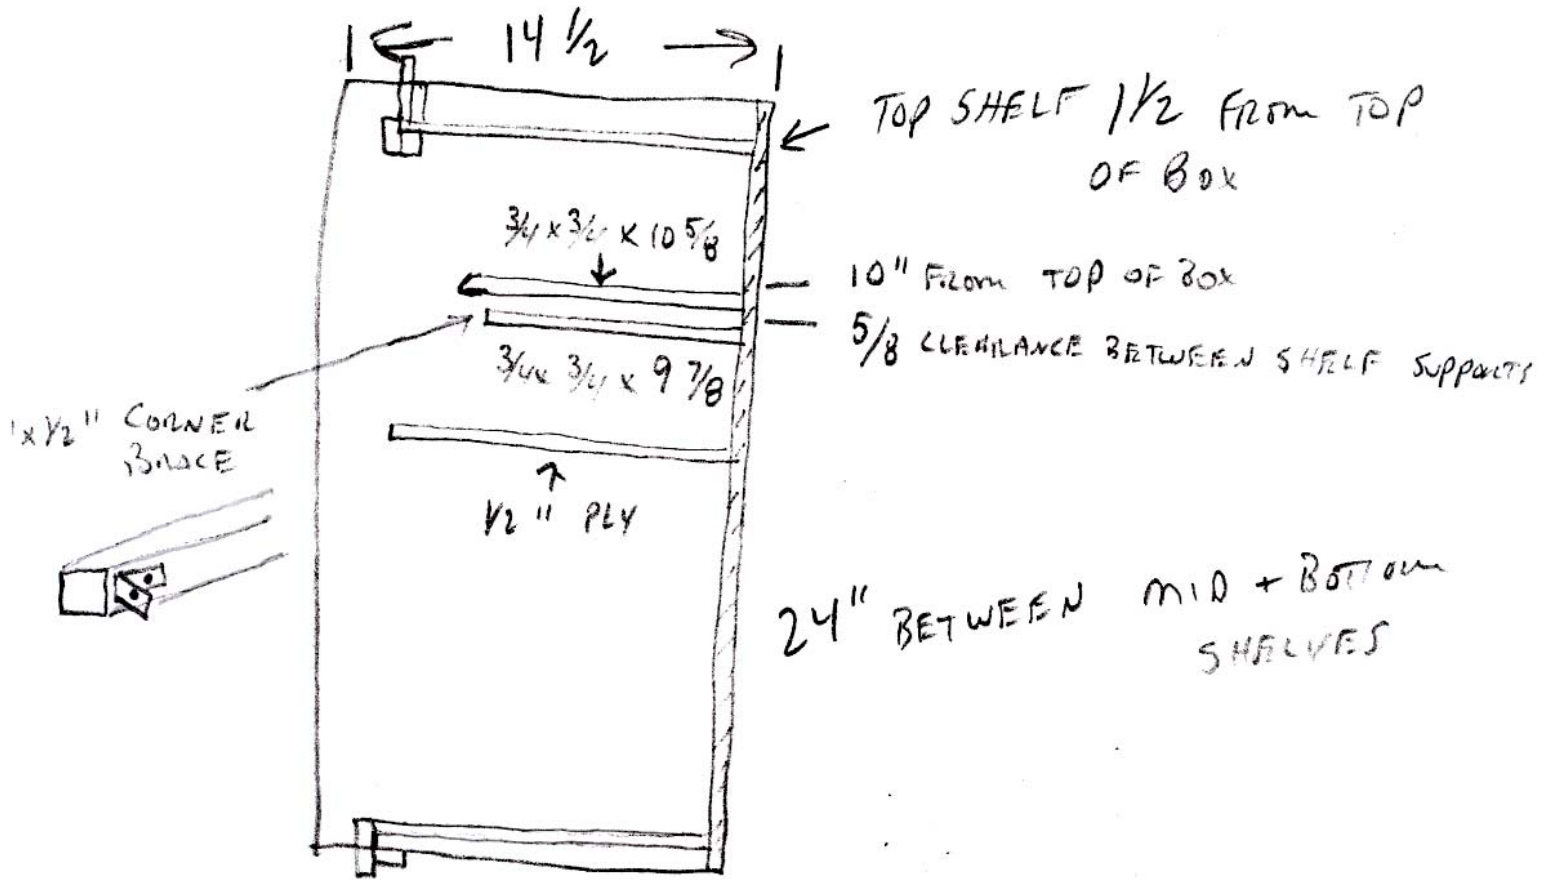 14 1/2
TOP SHELF 1 1/2 FROM TOP
OF BOX
3/4 x 3/4 x 10 5/8
10" FROM TOP OF BOX
5/8 CLEARANCE BETWEEN SHELF SUPPORTS
3/4 x 3/4 x 9 7/8
1 x 1/2" CORNER
BRACE
1/2" PLY
24" BETWEEN MID + BOTTOM
SHELVES